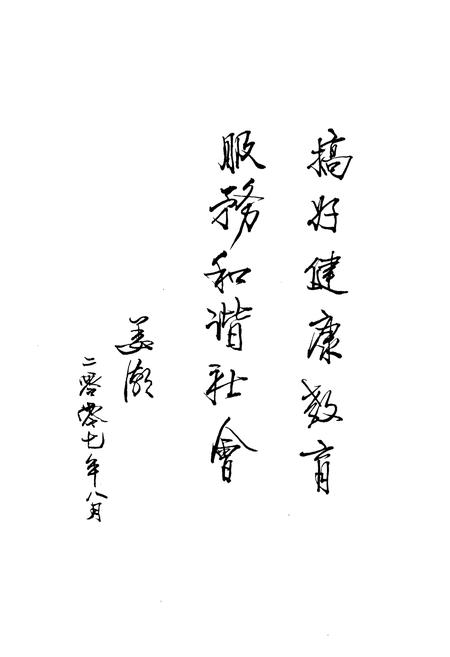 搞好健康教育
服務和谐社會
姜瀚
二零零七年八月